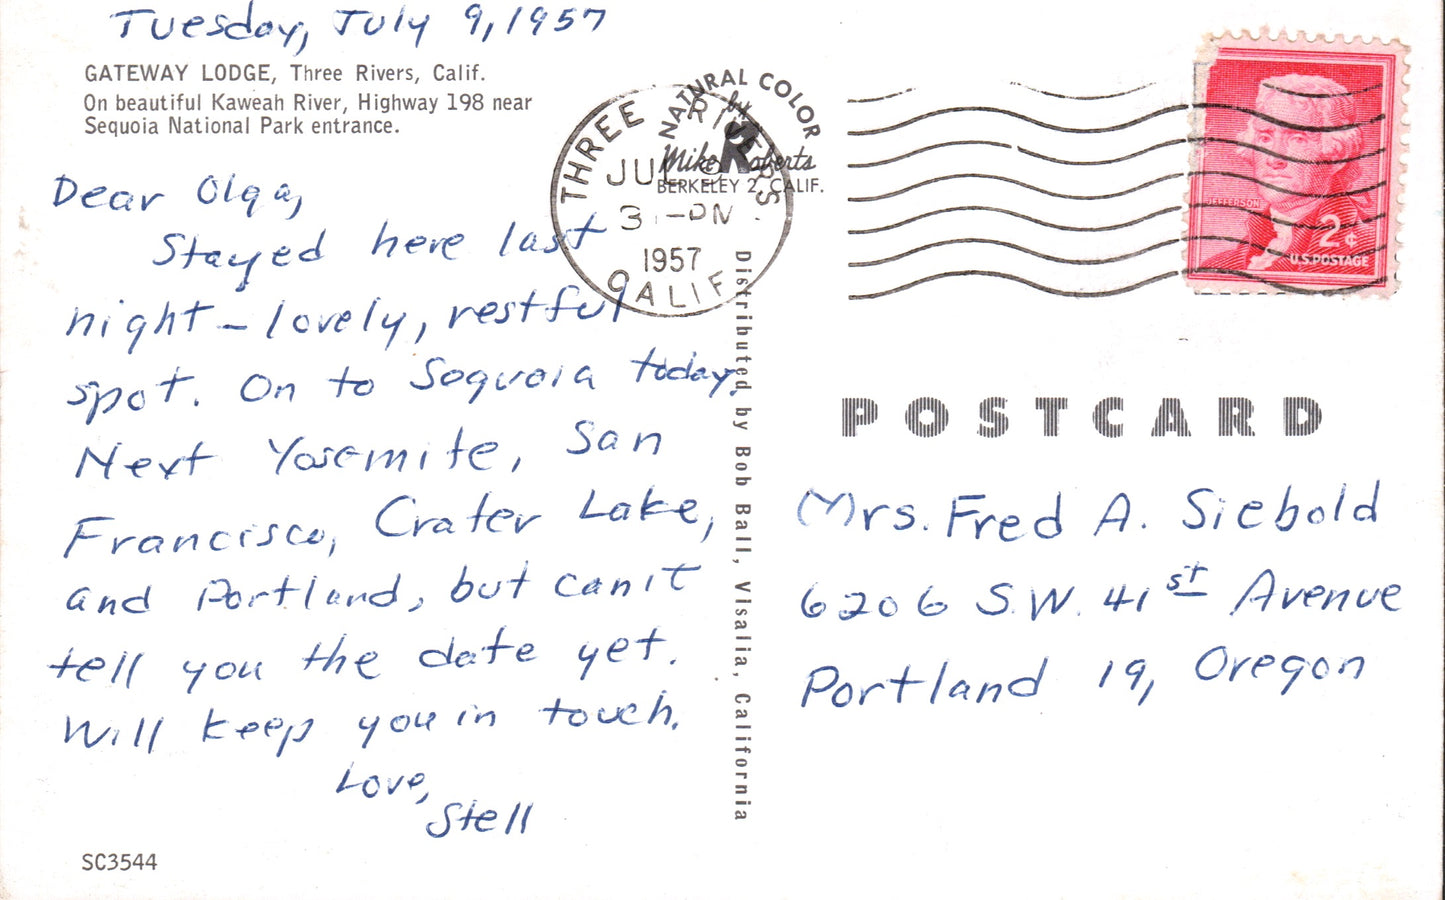 Tuesday, July 9, 1957
GATEWAY LODGE, Three Rivers, Calif.
On beautiful Kaweah River, Highway 198 near
Sequoia National Park entrance.
Dear Olga,
Stayed here last
night – lovely, restful
spot. On to Sequoia today.
Next Yosemite, San
Francisco, Crater Lake,
and Portland, but can't
tell you the date yet.
Will keep you in touch.
Love,
Stell
SC3544
THREE RIVERS
JUL
PM
1957
CALIF
NATURAL COLOR
by
Mike Roberts
BERKELEY 2, CALIF.
Distributed by Bob Ball, Visalia, California
JEFFERSON
2¢
U.S. POSTAGE
POSTCARD
Mrs. Fred A. Siebold
6206 S.W. 41st Avenue
Portland 19, Oregon